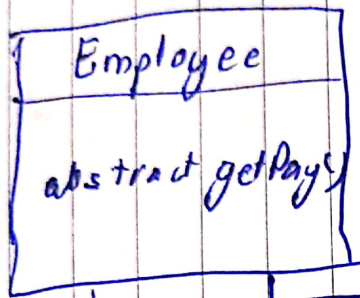 Employee
abstract getPay()